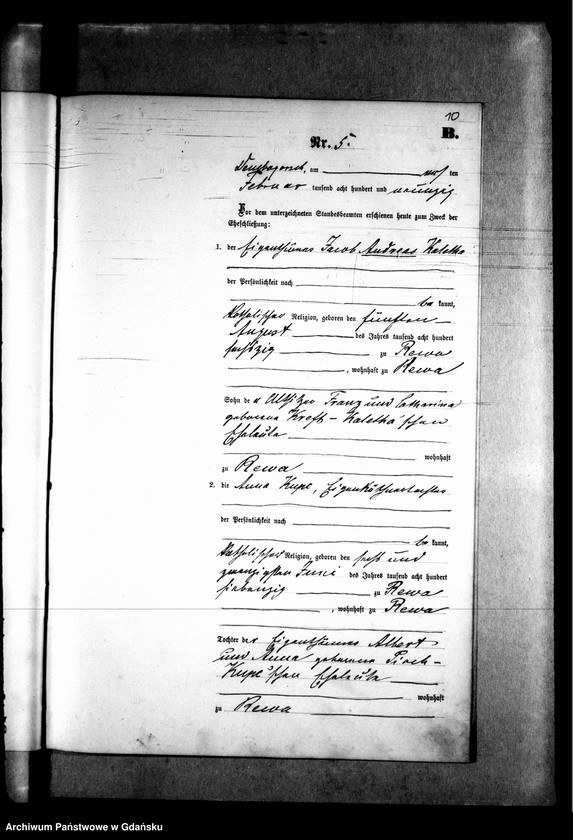 10
B.
Nr. 5.
am ten
Februar tausend acht hundert und neunzig
Vor dem unterzeichneten Standesbeamten erschienen heute zum Zweck der
Eheschließung:
1. der Eigenthümer Jacob Andreas Kaletha
der Persönlichkeit nach
be kannt,
katholischer Religion, geboren den fünften
August des Jahres tausend acht hundert
sechszig zu Rewa
, wohnhaft zu Rewa
Sohn der Altsitzer Franz und Catharina
geborene Kreft - Kaletha'schen
Eheleute
wohnhaft
zu Rewa
2. die Anna Kupc,
der Persönlichkeit nach
be kannt,
katholischer Religion, geboren den sechs und
zwanzigsten Juni des Jahres tausend acht hundert
siebenzig zu Rewa
, wohnhaft zu Rewa
Tochter der Eigenthümer Albert
und Anna geborene
Kupc'schen Eheleute
wohnhaft
zu Rewa
Archiwum Państwowe w Gdańsku